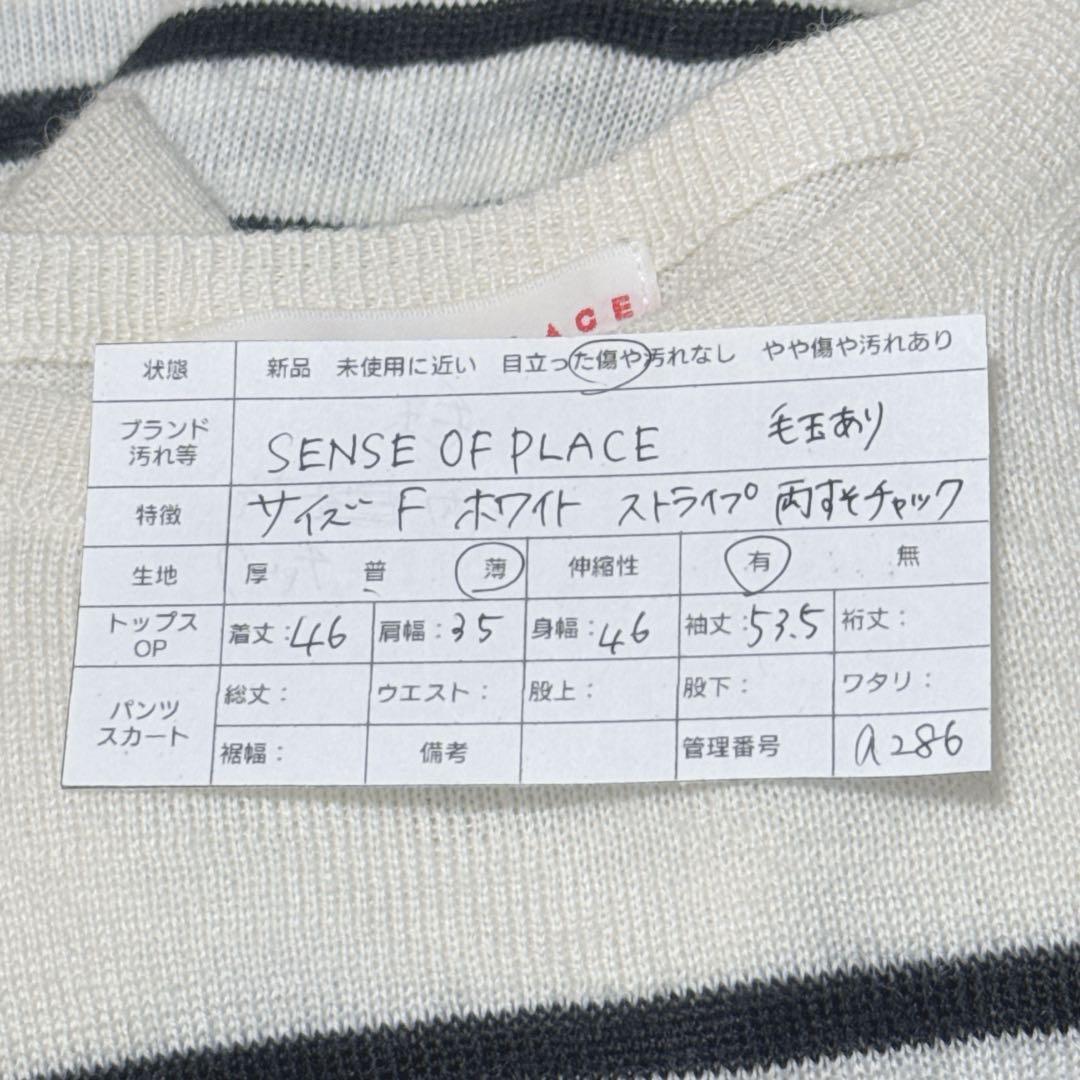 ACE
状態 新品 未使用に近い 目立った傷や汚れなし やや傷や汚れあり
ブランド
汚れ等 SENSE OF PLACE 毛玉あり
特徴 サイズF ホワイト ストライプ 両すそチャック
生地 厚 普 薄 伸縮性 有 無
トップス
OP 着丈:46 肩幅:35 身幅:46 袖丈:53.5 裄丈:
パンツ
スカート 総丈: ウエスト: 股上: 股下: ワタリ:
裾幅: 備考 管理番号 a286